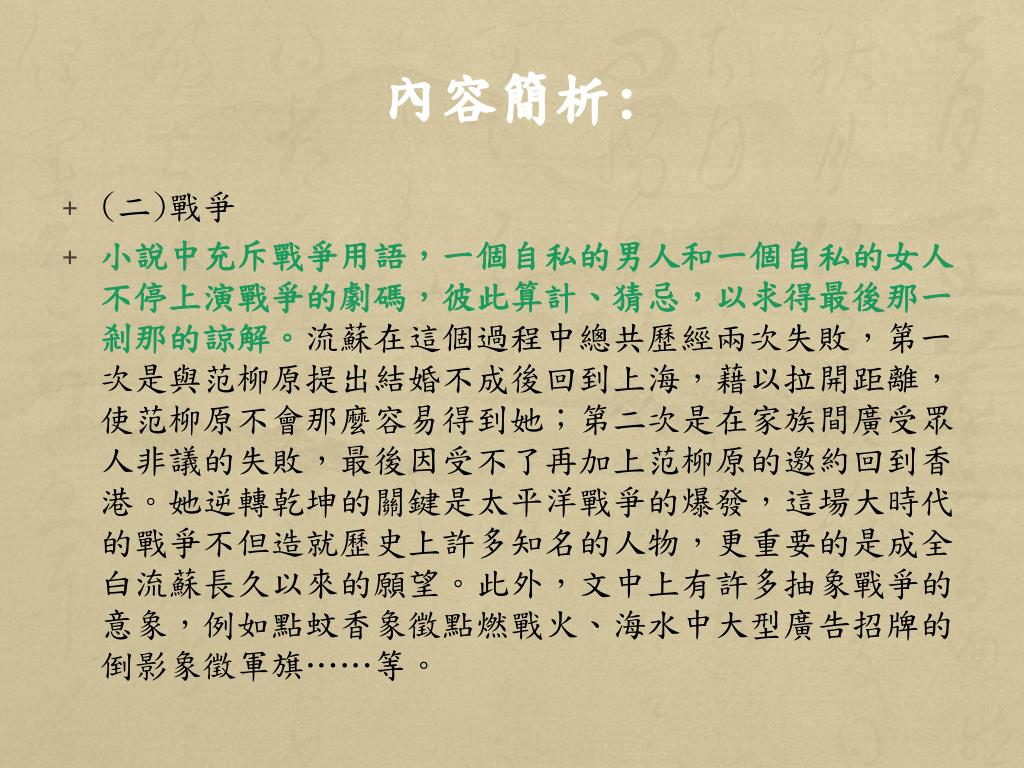 內容簡析：
+ (二)戰爭
+ 小說中充斥戰爭用語，一個自私的男人和一個自私的女人
不停上演戰爭的劇碼，彼此算計、猜忌，以求得最後那一
剎那的諒解。流蘇在這個過程中總共歷經兩次失敗，第一
次是與范柳原提出結婚不成後回到上海，藉以拉開距離，
使范柳原不會那麼容易得到她；第二次是在家族間廣受眾
人非議的失敗，最後因受不了再加上范柳原的邀約回到香
港。她逆轉乾坤的關鍵是太平洋戰爭的爆發，這場大時代
的戰爭不但造就歷史上許多知名的人物，更重要的是成全
白流蘇長久以來的願望。此外，文中上有許多抽象戰爭的
意象，例如點蚊香象徵點燃戰火、海水中大型廣告招牌的
倒影象徵軍旗……等。